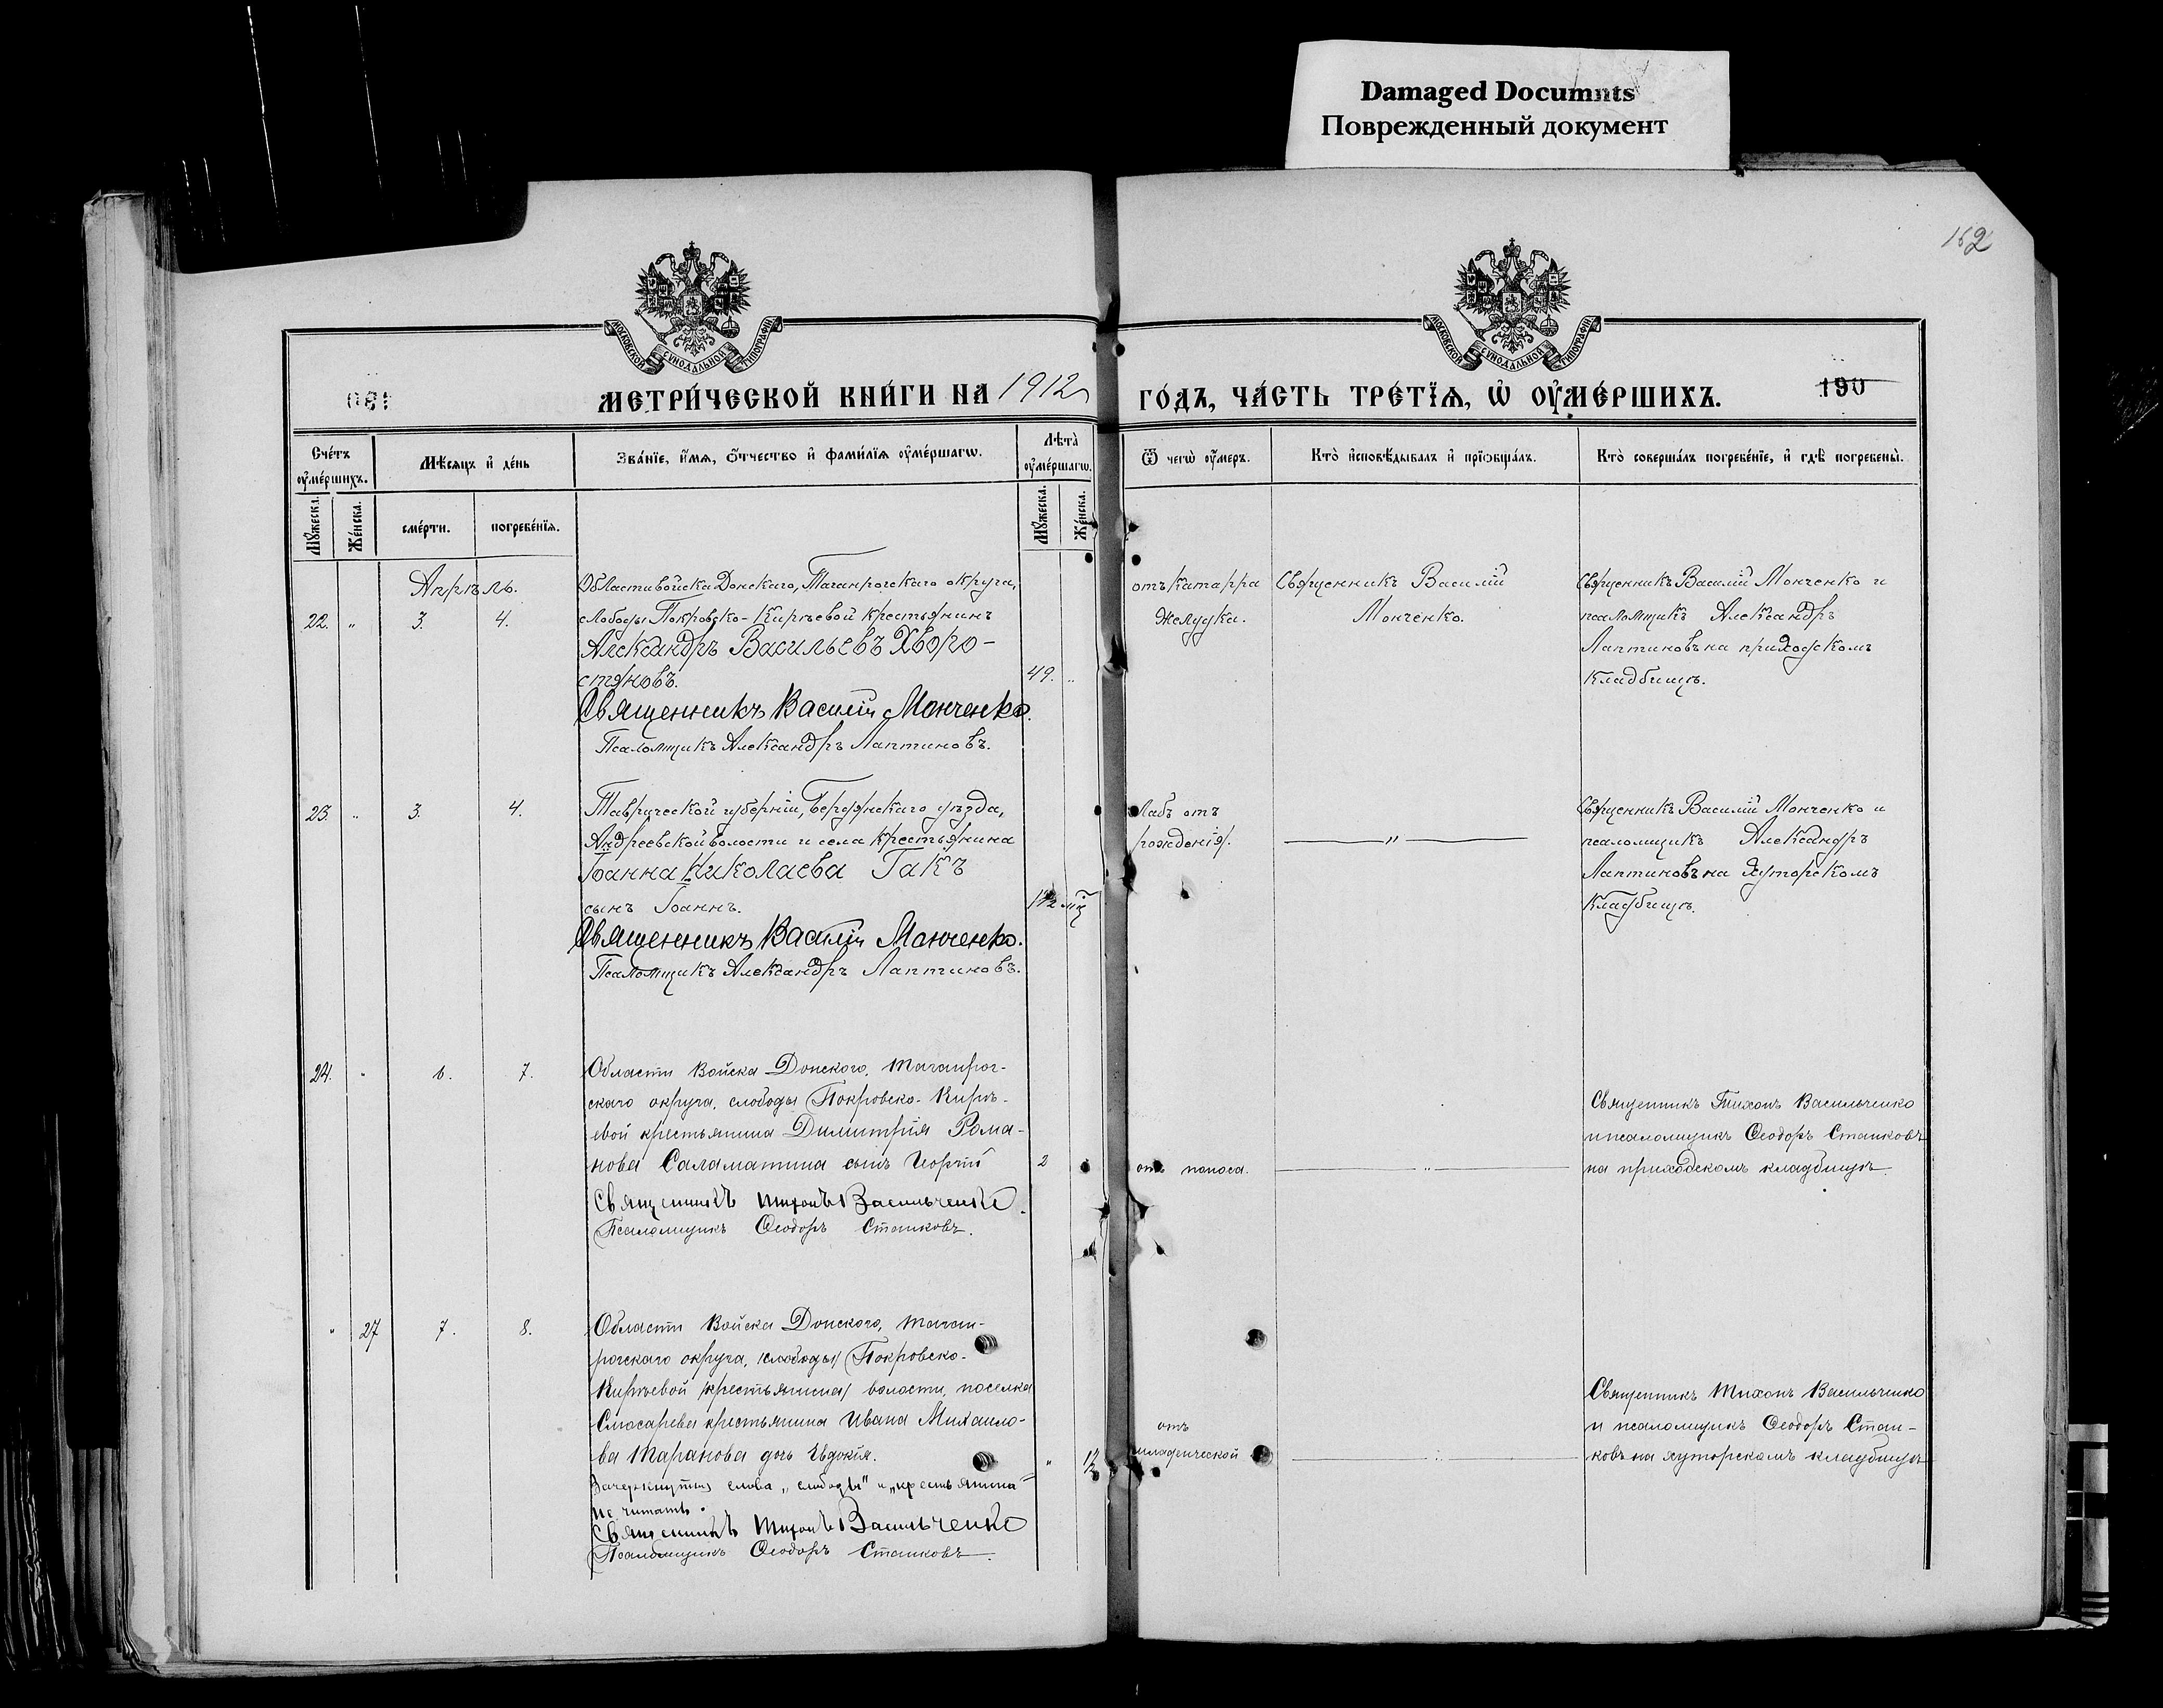 Damaged Documnts
Поврежденный документ
162
МОСКОВСКОЙ СѴНОДАЛЬНОЙ ТИПОГРАФІИ
МОСКОВСКОЙ СѴНОДАЛЬНОЙ ТИПОГРАФІИ
МЕТРИ́ЧЕСКОЙ КНИ́ГИ НА 1912 ГО́ДЪ, ЧА́СТЬ ТРЕ́ТЇѦ, Ѡ҆ ОУ҆МЕ́РШИХЪ.
190
Сче́тъ оу҆ме́ршихъ.
Мѣ́сяцъ и҆ де́нь
Зва́нїе, и҆́мя, ѻ҆́тчество и҆ фами́лїя оу҆ме́ршагѡ.
Лѣта̀ оу҆ме́ршагѡ.
Ѿ чегѡ̀ оу҆́меръ.
Кто̀ и҆сповѣ́дывалъ и҆ прїѻбща́лъ.
Кто̀ соверша́лъ погребе́нїе, и҆ гдѣ̀ погребены̀.
Мꙋ́жеска.
Же́нска.
сме́рти.
погребе́нїя.
Мꙋ́жеска.
Же́нска.
Апрѣль.
22. " 3. 4.
Области войска Донскаго, Таганрогскаго округа,
слободы Покровско-Кирѣевой крестьянинъ
Александръ Васильевъ Хворо-
стяновъ.
49. "
Священникъ Василій Монченко.
Псаломщикъ Александръ Лаптиновъ.
отъ катарра
желудка.
Священникъ Василій
Монченко.
Священникъ Василій Монченко и
псаломщикъ Александръ
Лаптиновъ на приходскомъ
кладбищѣ.
23. " 3. 4.
Таврической губерніи, Бердянскаго уѣзда,
Андреевской волости и села крестьянина
Іоанна Николаева Гакъ
сынъ Іоаннъ.
Священникъ Василій Монченко.
Псаломщикъ Александръ Лаптиновъ.
Слабъ отъ
рожденія.
"
Священникъ Василій Монченко и
псаломщикъ Александръ
Лаптиновъ на хуторскомъ
кладбищѣ.
24. " 6. 7.
Области Войска Донского, Таганрог-
скаго округа, слободы Покровско-Кирѣ-
евой крестьянина Димитрія Рома-
нова Саламатина сынъ Георгій
2
Священникъ Тихонъ Васильченко.
Псаломщикъ Ѳеодоръ Станковъ.
отъ поноса.
"
Священникъ Тихонъ Васильченко
и псаломщикъ Ѳеодоръ Станковъ
на приходскомъ кладбищѣ.
" 27 7. 8.
Области Войска Донского, Таган-
рогскаго округа, (слободы) Покровско-
Кирѣевой (крестьянина) волости, поселка
Слюсарева крестьянина Ивана Михаило-
ва Таранова дочь Евдокія.
" 1/2
Зачеркнутыя слова "слободы" и "крестьянина"
не читать.
Священникъ Тихонъ Васильченко
Псаломщикъ Ѳеодоръ Станковъ.
отъ
младенческой
Священникъ Тихонъ Васильченко
и псаломщикъ Ѳеодоръ Стан-
ковъ на хуторскомъ кладбищѣ